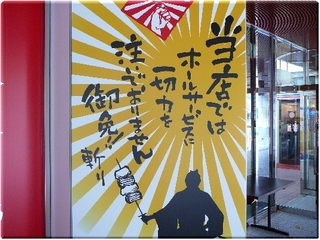 当店では
ホールサービスに
一切力を
注いでおりません
御免!!
斬り